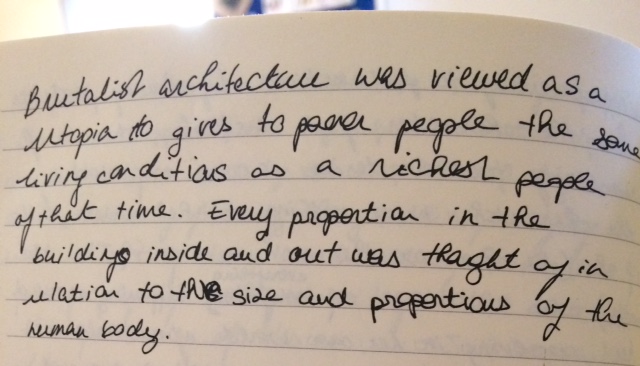 Brutalist architecture was viewed as a
Utopia to gives to poorer people the same
living conditions as a richest people
of that time. Every proportion in the
buildings inside and out was thaght of in
relation to the size and proportions of the
human body.